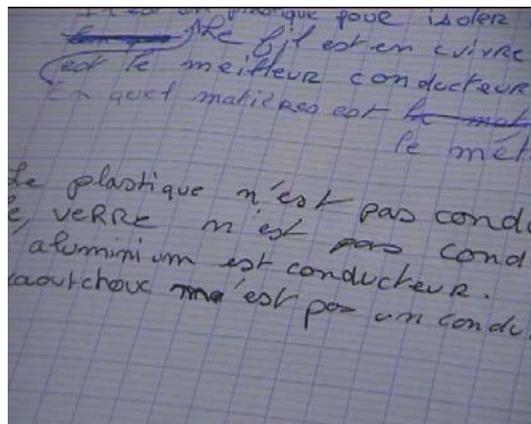 est un plastique pour isoler
le fil est en cuivre
est le meilleur conducteur
En quel matières est
le mét
le plastique n'est pas condu
e, VERRE n'est pas cond
aluminium est conducteur.
aoutchouc n'est pas un condu